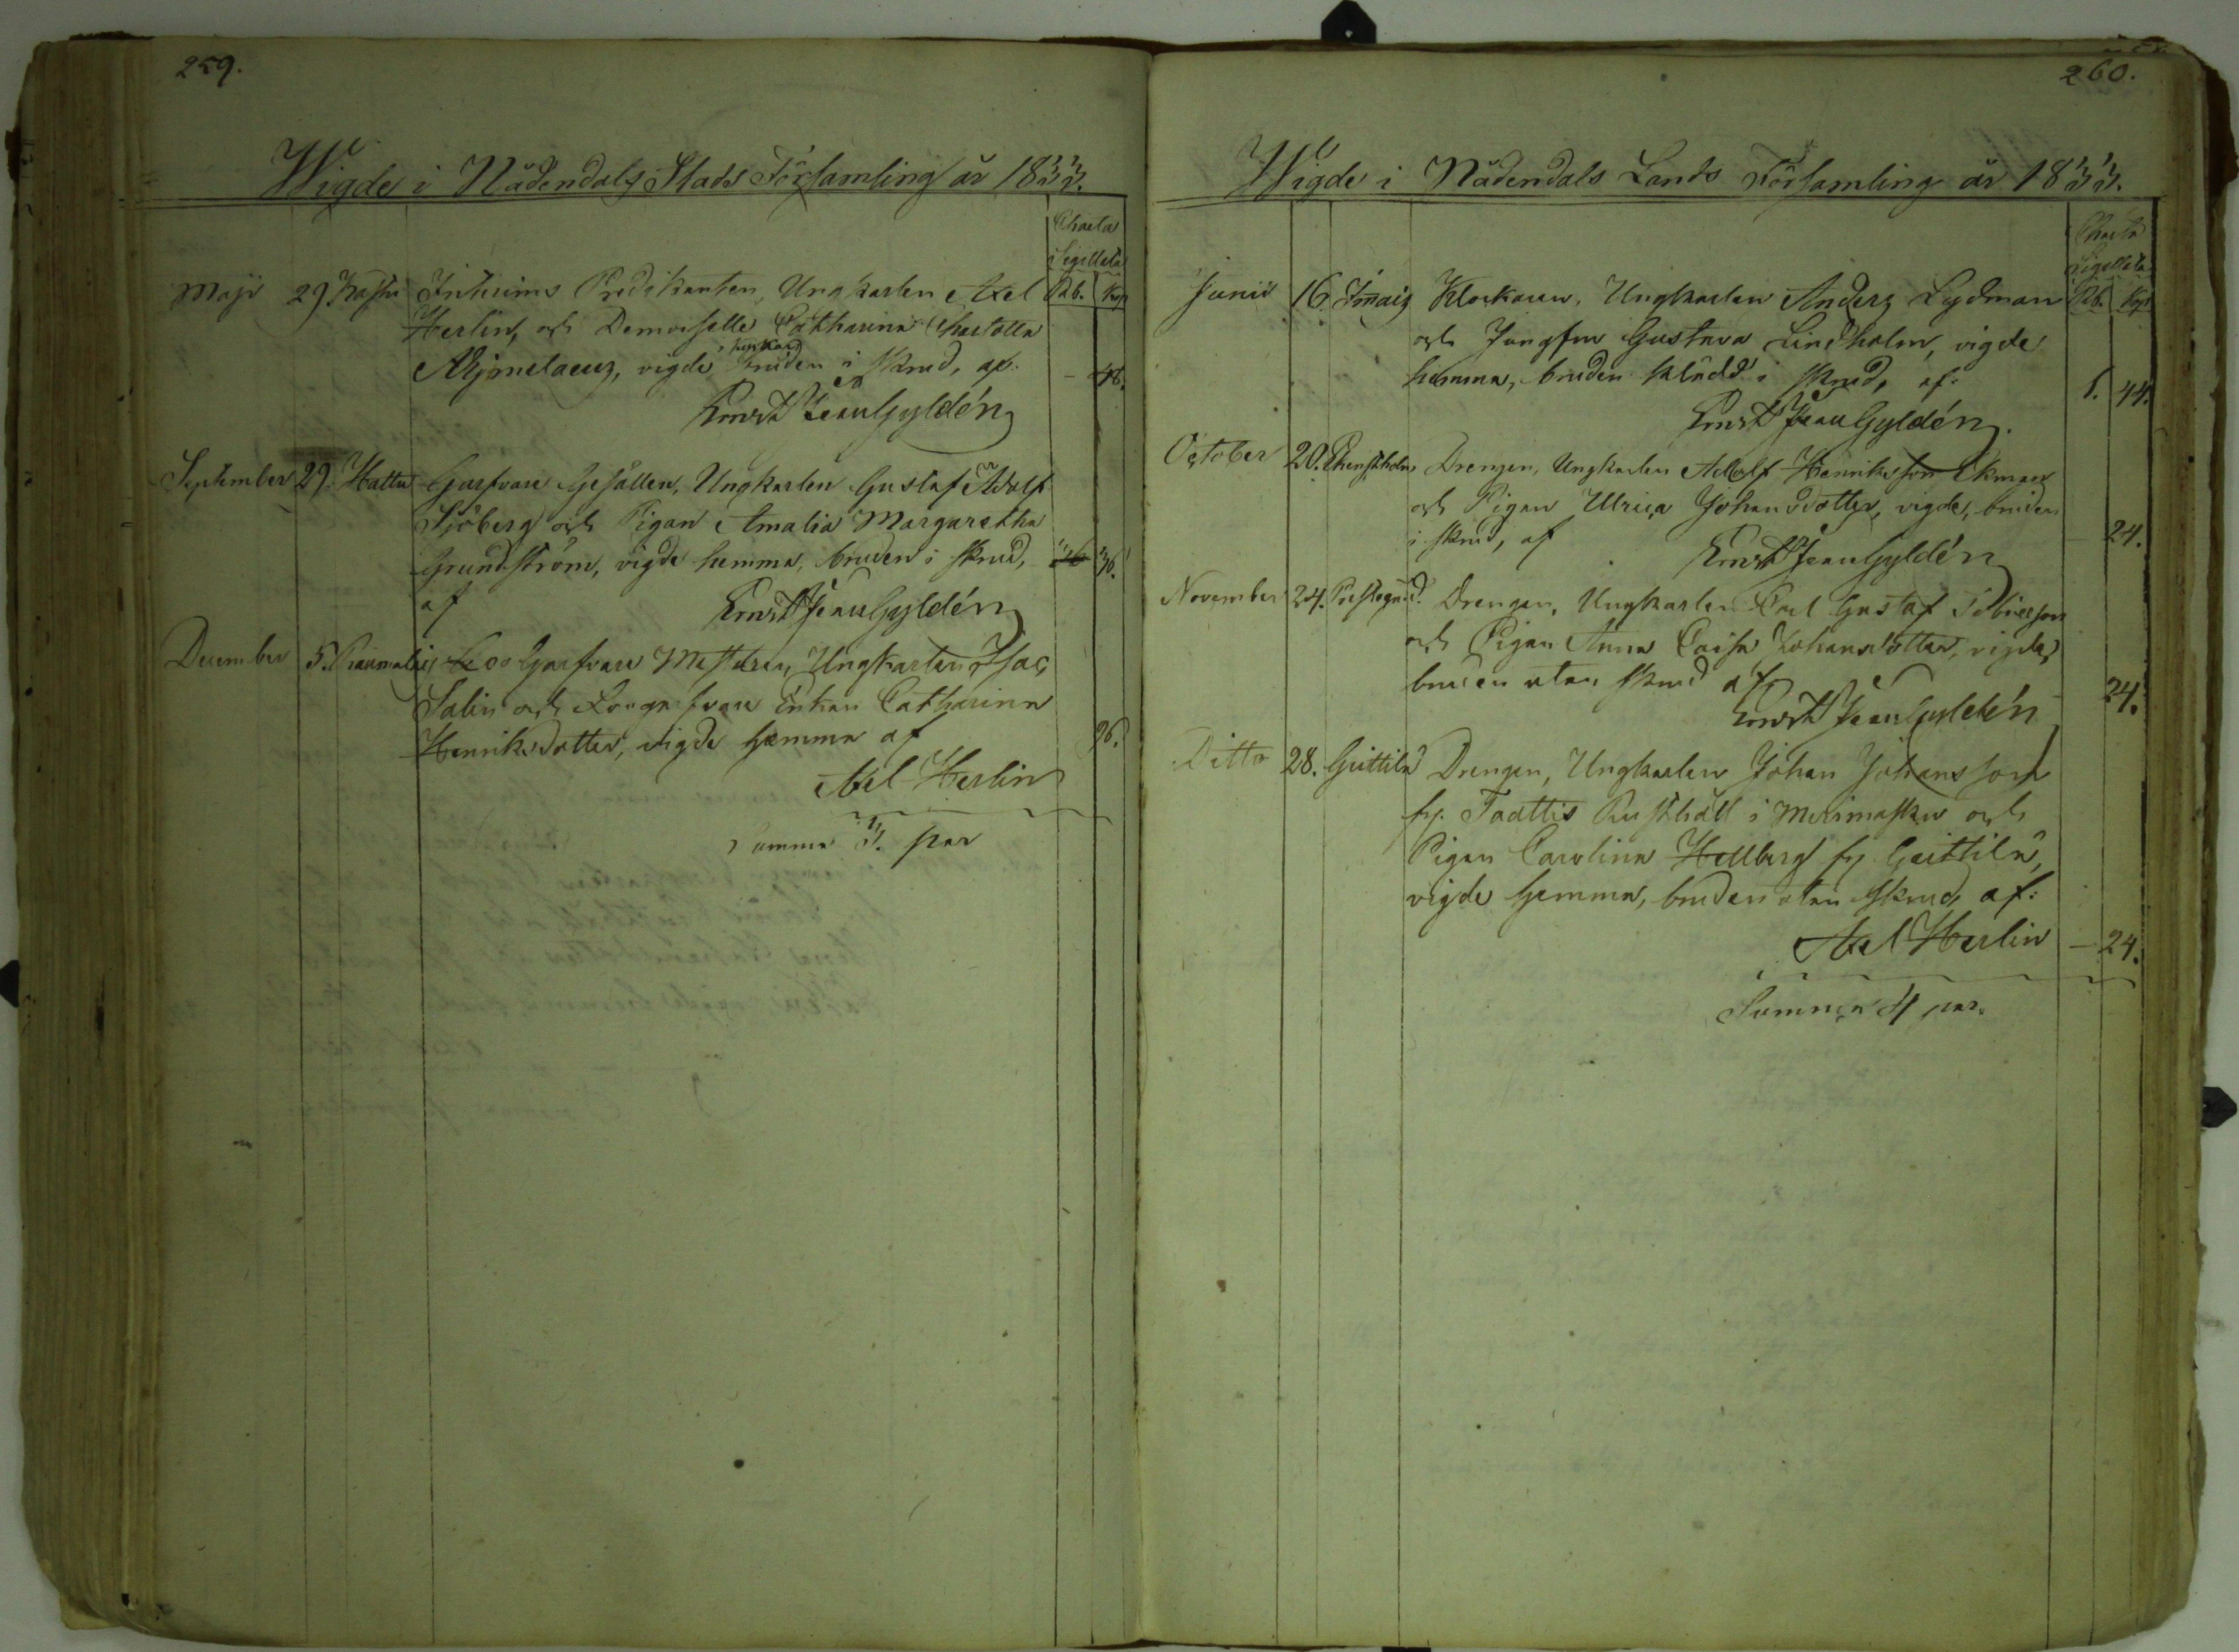 259.
Wigde i Nådendals Stads Församling år 1833.
Charta
Sigillata
Rub. Kop
Maji 29. Interims Predikanten, Ungkarlen Axel
Herlin, och Demoiselle Catharina Charlotta
Argimelaeus, vigde bruden i skrud, af: – 48.
Ernst Jean Gyldén
September 29. Hattu Garfvare Gesällen, Ungkarlen Gustaf Adolf
Sjöberg och Pigan Amalia Margaretha
Grundström, vigde hemma, bruden i skrud, 36.
af Ernst Jean Gyldén
December 5. Garfvare Mästaren, Ungkarlen Isac
Salin och Enkan Catharina
Henriksdotter, vigde hemma af 96.
Axel Herlin
Summa 3. par
260.
Wigde i Nådendals Lands Församling år 1833.
Charta
Sigillata
Rb. Kop
Junii 16. Klockaren, Ungkarlen Anders Lydman
och Jungfru Gustava Lindholm, vigde
hemma, bruden klädd i skrud, af: 1. 44.
Ernst Jean Gyldén.
October 20. Drengen, Ungkarlen Adolf Henriksson Ekman
och Pigan Ulrica Johansdotter, vigde, bruden
i skrud, af 24.
Ernst Jean Gyldén
November 24. Prestegård. Drengen, Ungkarlen Carl Gustaf Tobiesson
och Pigan Anna Caisa Johansdotter, vigde,
bruden utan skrud af 24.
Ernst Jean Gyldén
Ditto 28. Geittilä Drengen, Ungkarlen Johan Johansson
fr. Taattis Rusthåll i Merimasku och
Pigan Carolina Hellberg fr. Geittilä,
vigde hemma, bruden utan skrud, af:
Axel Herlin – 24.
Summa 4 par.